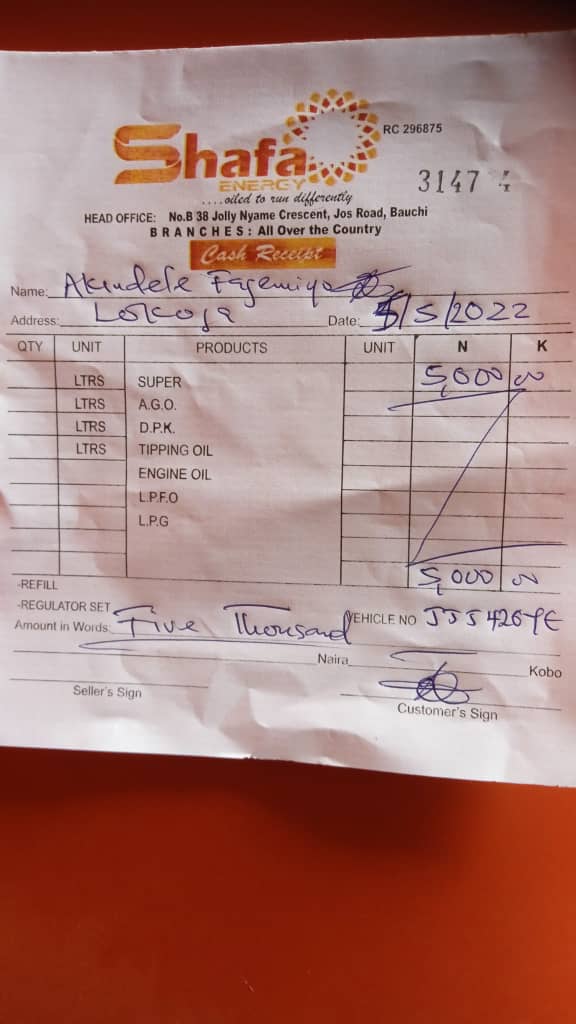 Shafa
RC 296875
ENERGY
3147 4
....oiled to run differently
HEAD OFFICE: No.B 38 Jolly Nyame Crescent, Jos Road, Bauchi
BRANCHES: All Over the Country
Cash Receipt
Name: Akindele
Address: Lokoja Date: 5/5/2022
QTY UNIT PRODUCTS UNIT N K
LTRS SUPER 5,000 00
LTRS A.G.O.
LTRS D.P.K.
LTRS TIPPING OIL
ENGINE OIL
L.P.F.O
L.P.G
5,000 00
-REFILL
-REGULATOR SET
VEHICLE NO JJJ426YE
Amount in Words: Five Thousand
Naira Kobo
Seller's Sign Customer's Sign